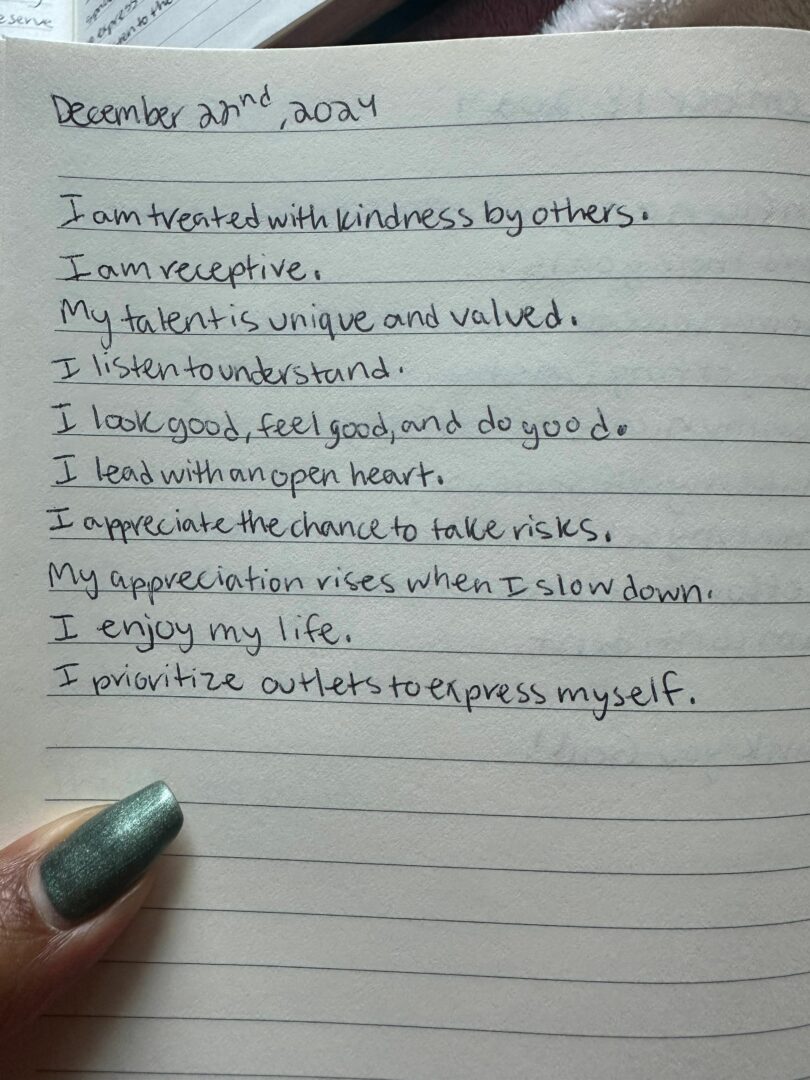 eserve
December 22nd, 2024
I am treated with kindness by others.
I am receptive.
My talent is unique and valued.
I listen to understand.
I look good, feel good, and do good.
I lead with an open heart.
I appreciate the chance to take risks.
My appreciation rises when I slow down.
I enjoy my life.
I prioritize outlets to express myself.